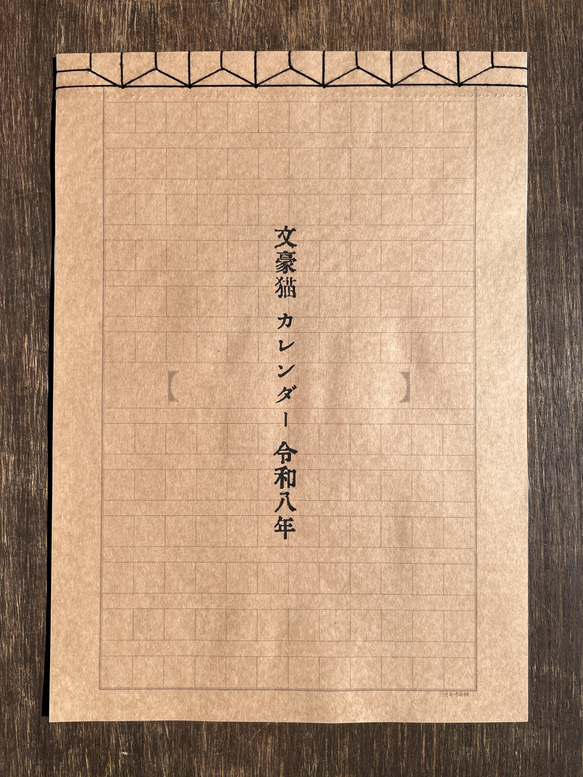 文豪猫 カレンダー 令和八年